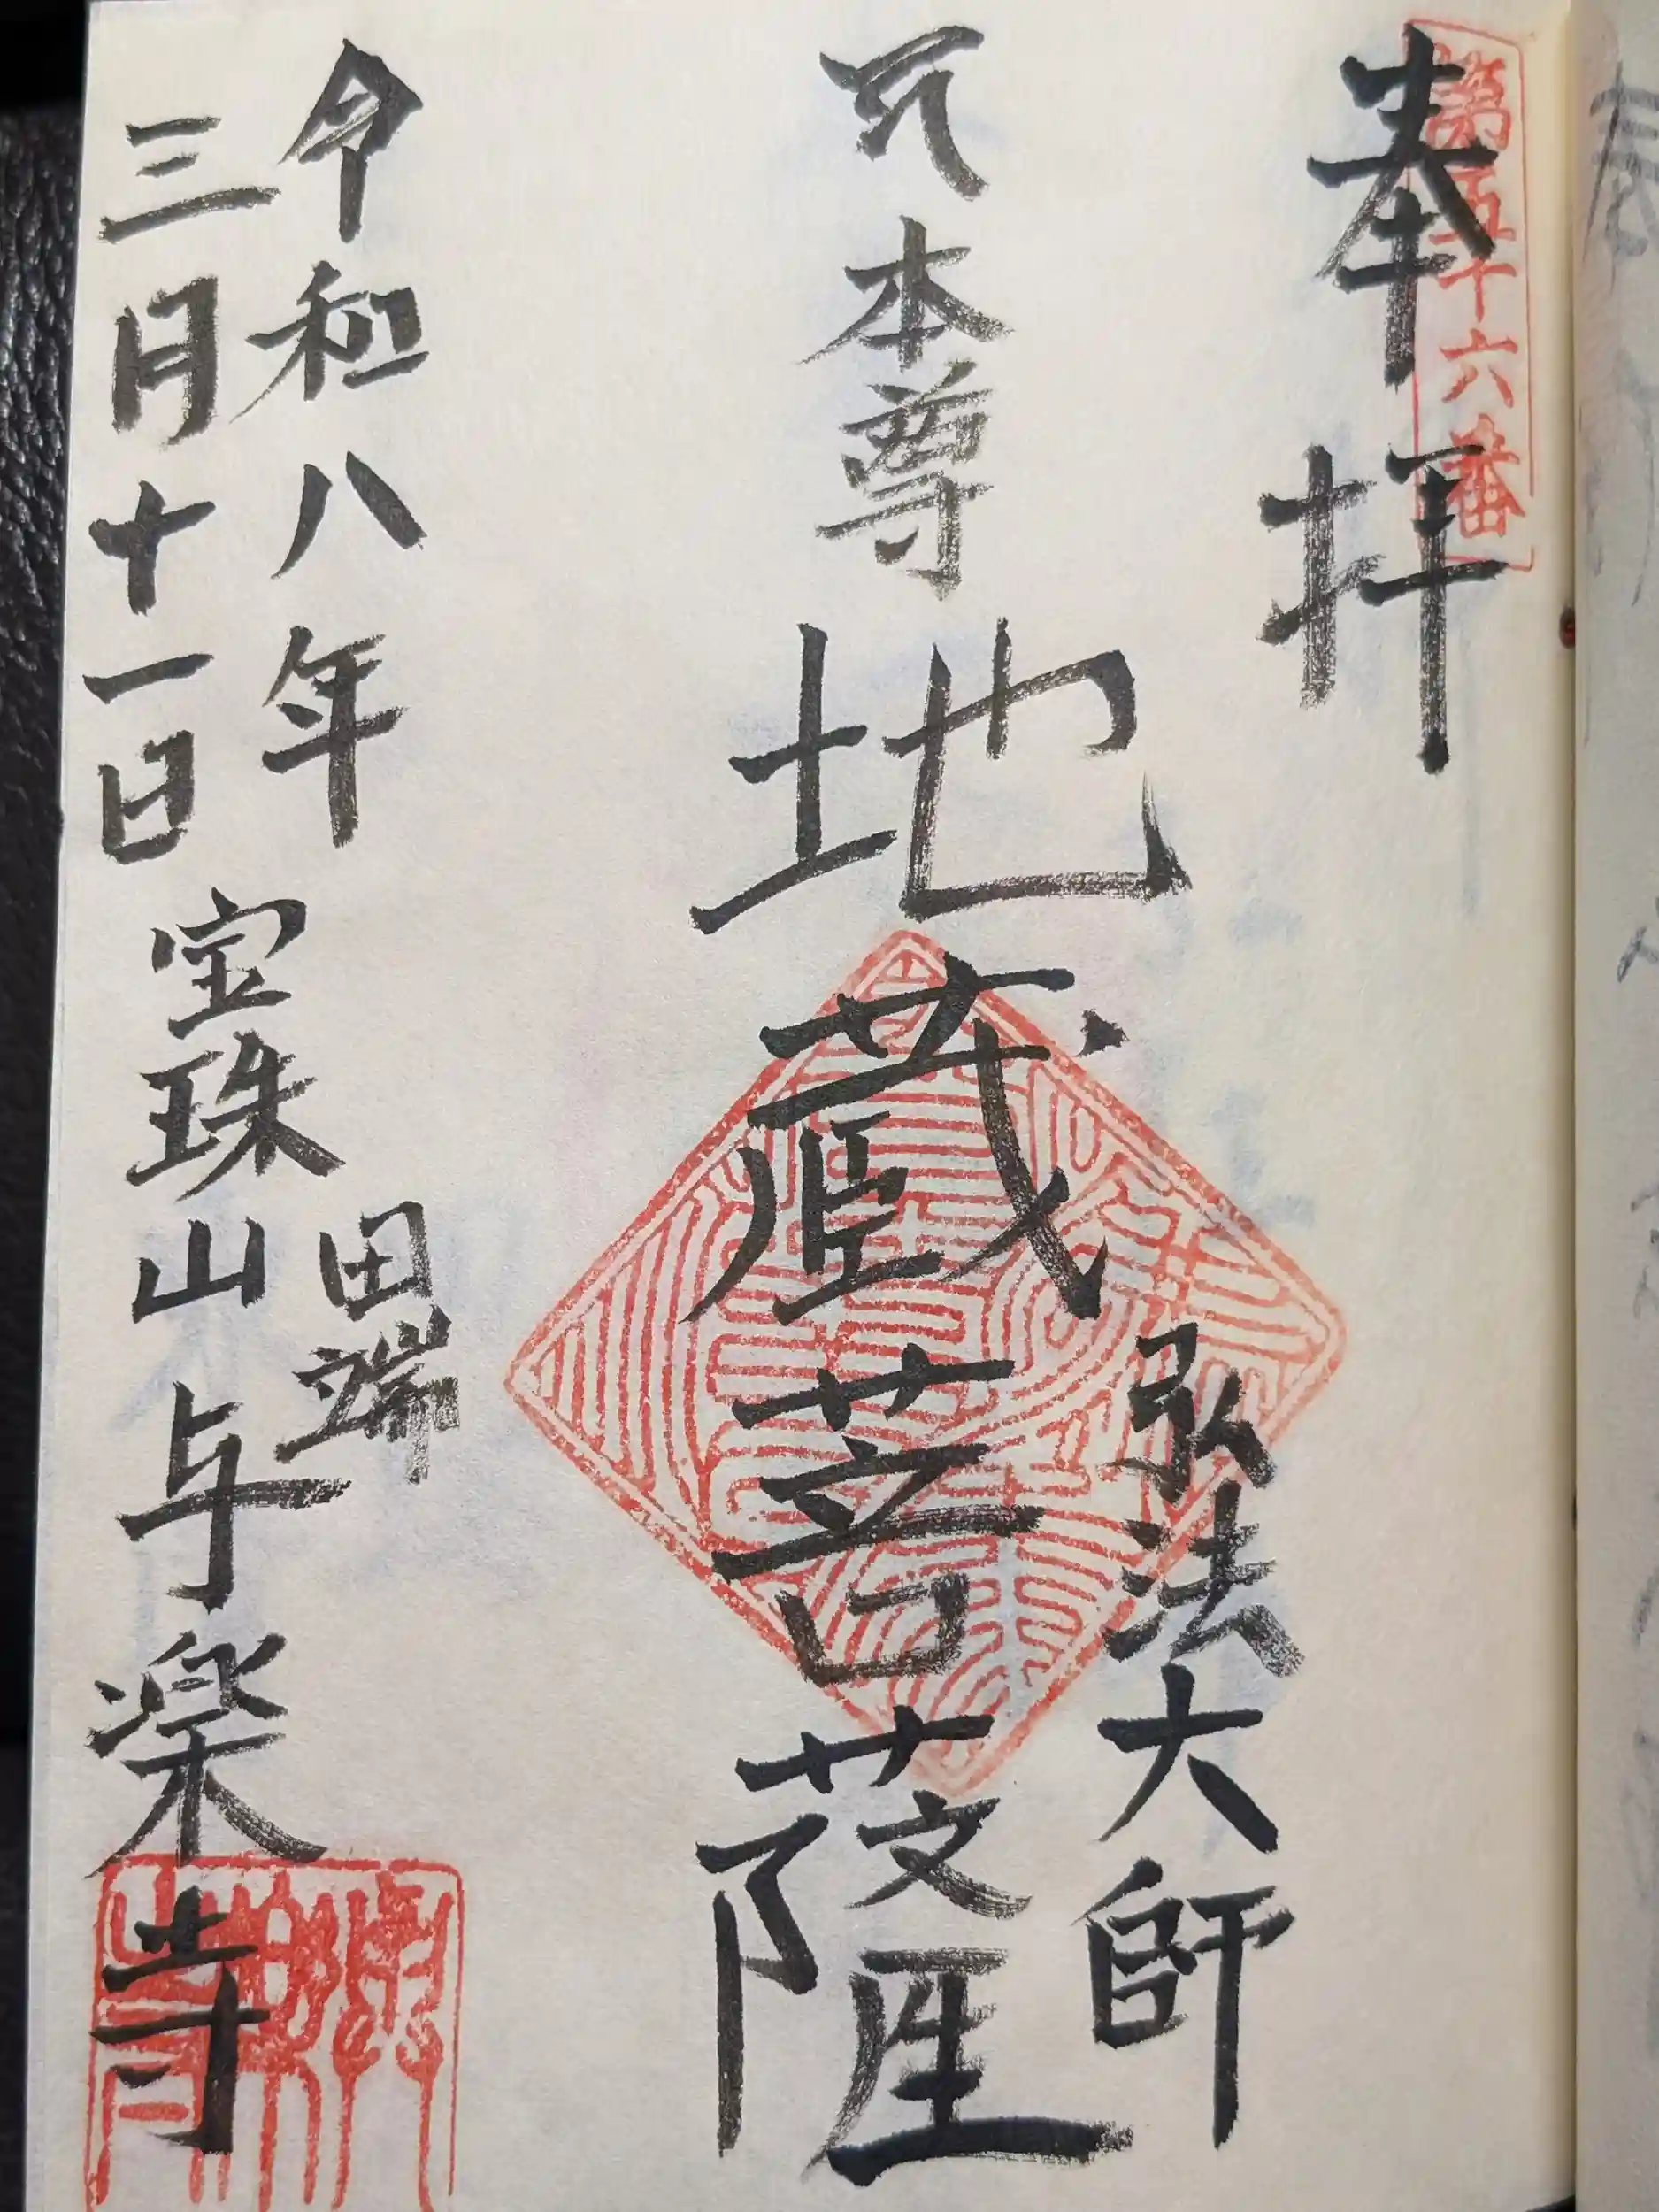 第五十六番
奉拝
弘法大師
本尊地蔵菩薩
令和八年
三月十一日
田端
宝珠山与楽寺